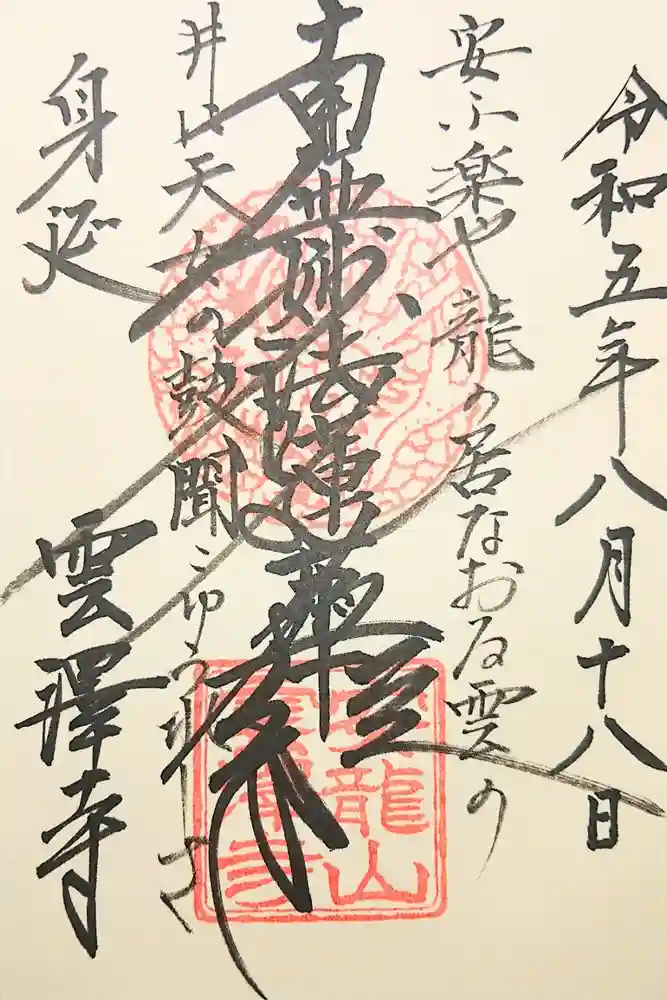 令和五年八月十八日
安楽や龍の居なおる雲の
南無妙法蓮華経
天女の鼓聞こゆ
身延
雲澤寺
龍山